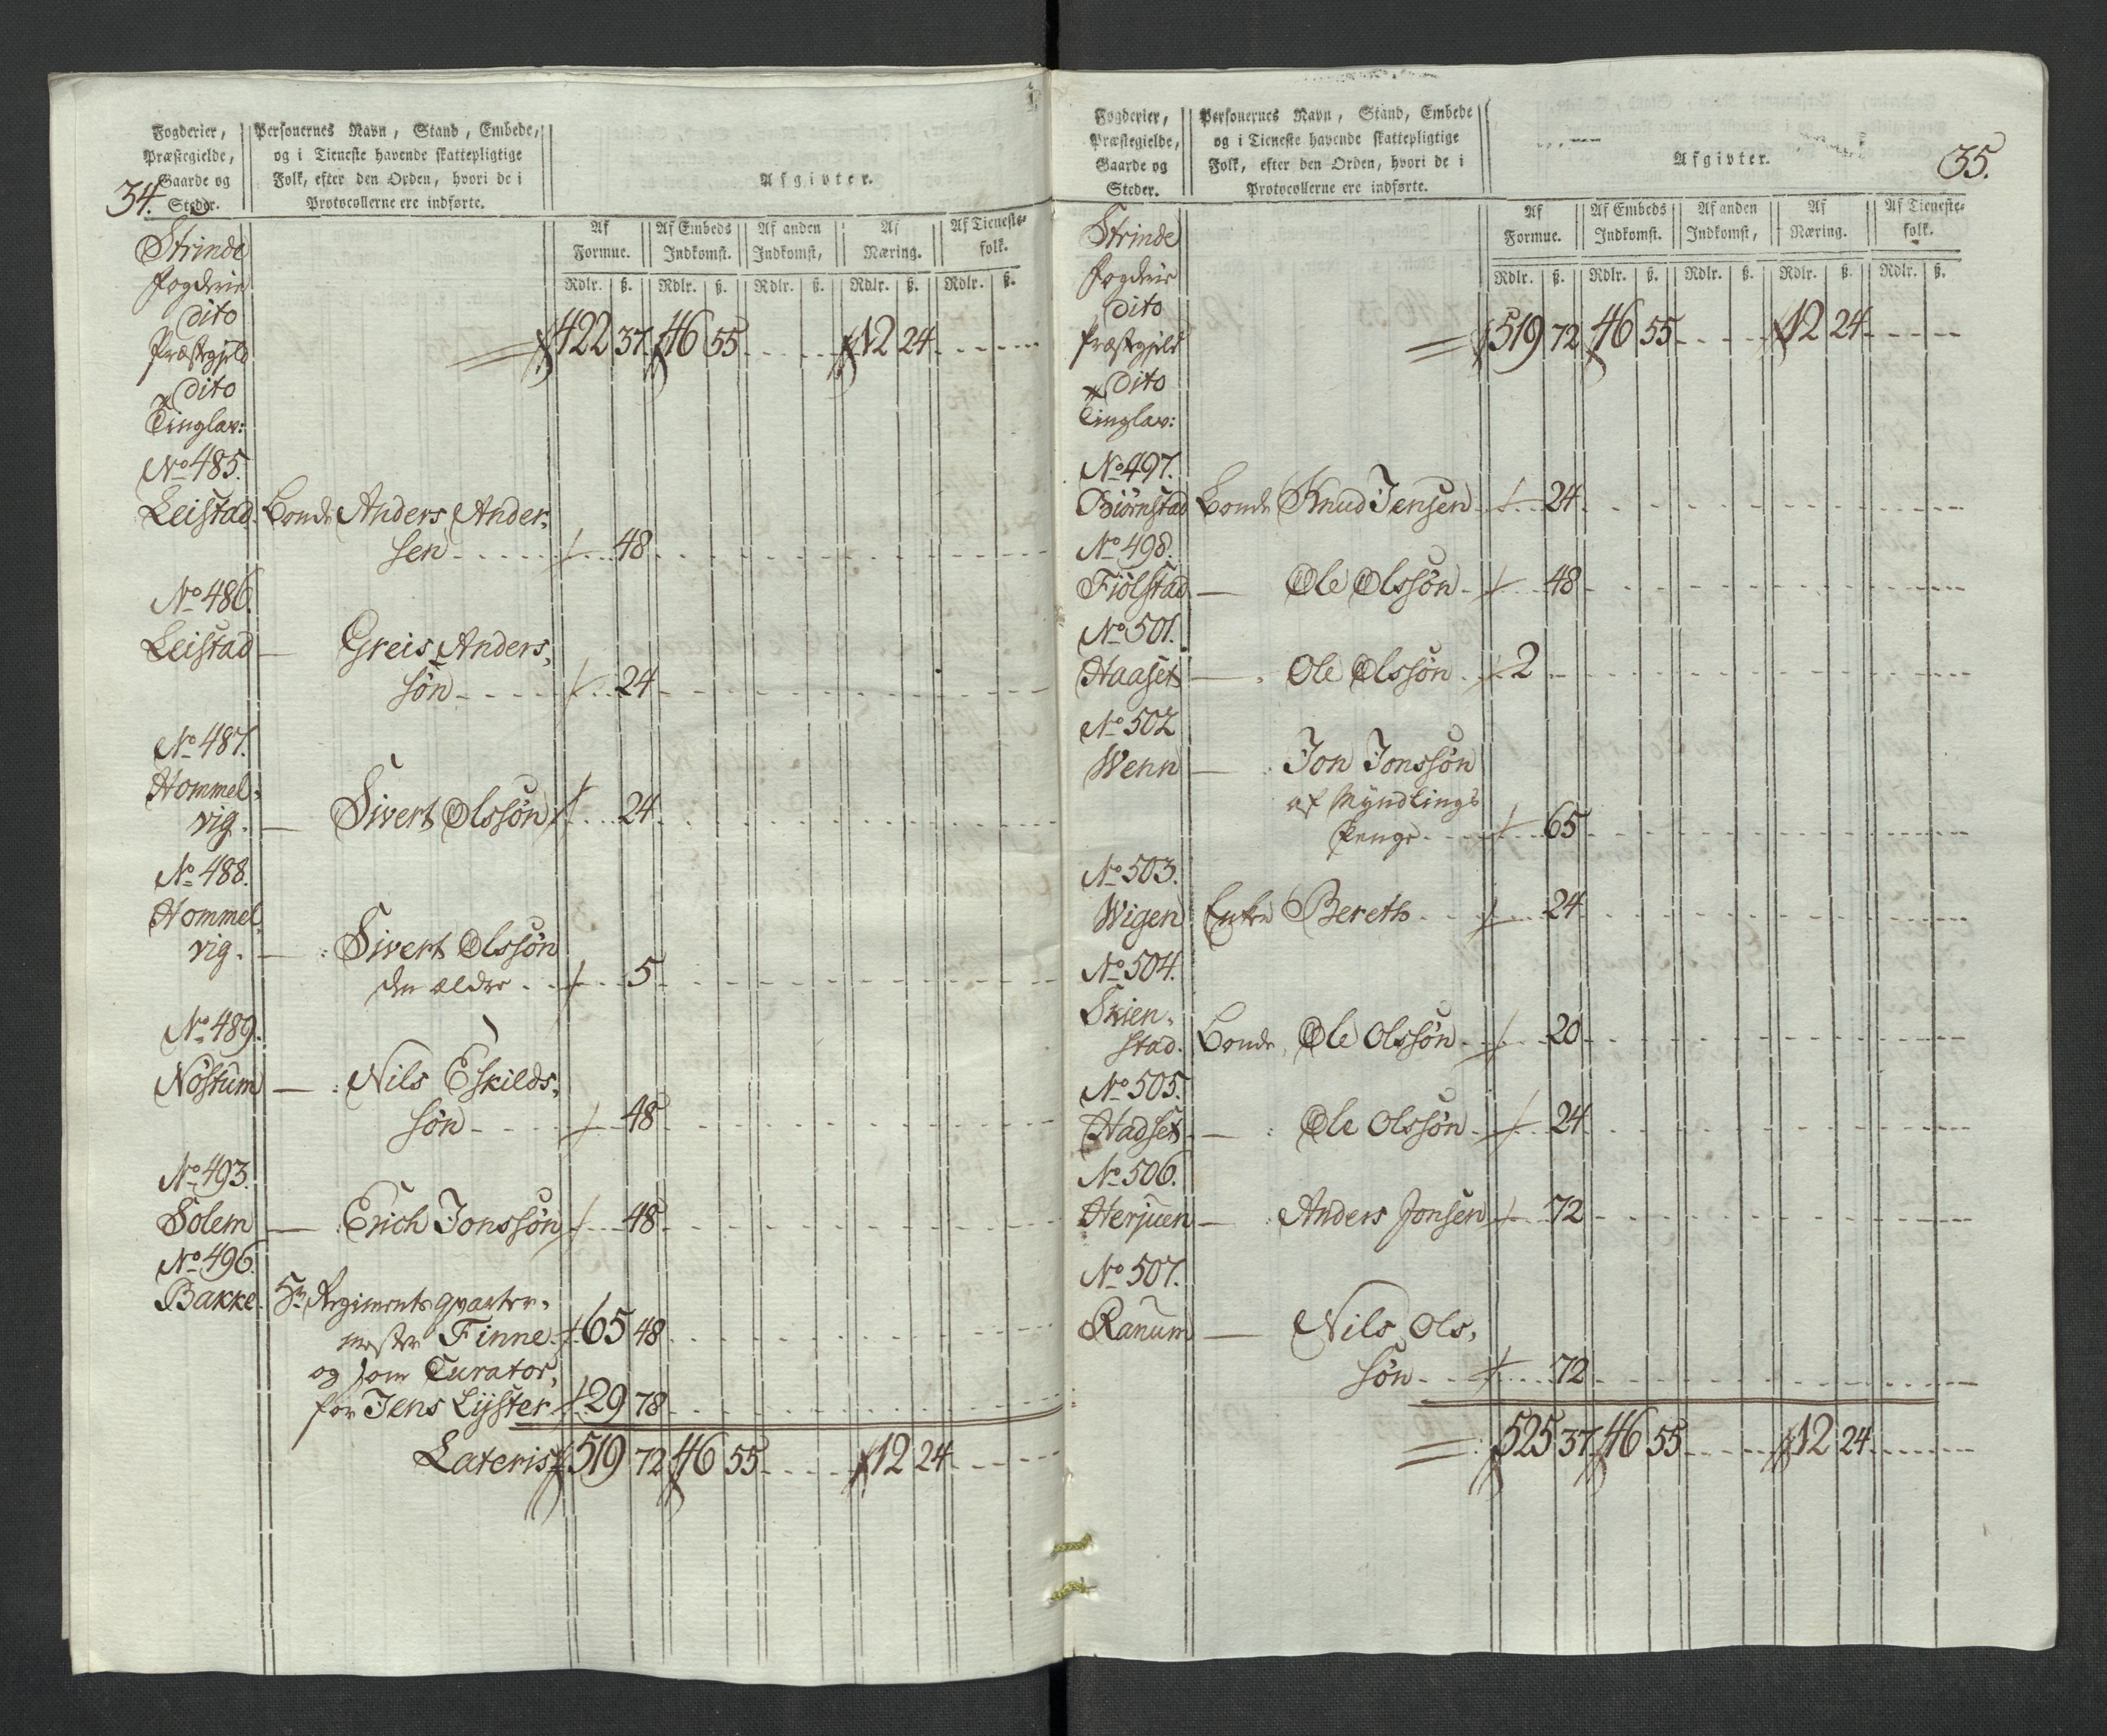 Fogderier,
Præstegielde,
Gaarde og
Steder.
34.
Personernes Navn, Stand, Embede,
og i Tieneste havende skattepligtige
Folk, efter den Orden, hvori de i
Protocollerne ere indførte.
Afgivter.
Af Formue. Af Embeds Indkomst. Af anden Indkomst, Af Næring. Af Tieneste-folk.
Rdlr. ß. Rdlr. ß. Rdlr. ß. Rdlr. ß. Rdlr. ß.
Strinde
Fogderie
dito
Præstegjeld 422 37 46 55 12 24
dito
Tinglav:
No 485.
Leistad. Bonde Anders Ander-
sen 48
No 486.
Leistad — Greis Anders,
søn 24
No 487.
Hommel-
vig. — Sivert Olssøn 24
No 488.
Hommel,
vig. — Sivert Olssøn
den ældre 5
No 489.
Nøstum — Nils Eskilds,
søn 48
No 493.
Solem — Erich Jonssøn 48
No 496.
Bakke. Hr Regimentsqvarter-
mester Finne 65 48
og som Curator,
for Jens Lÿster 29 78
Lateris 519 72 46 55 12 24
Fogderier,
Præstegielde,
Gaarde og
Steder.
Personernes Navn, Stand, Embede
og i Tieneste havende skattepligtige
Folk, efter den Orden, hvori de i
Protocollerne ere indførte.
Afgivter.
35.
Af Formue. Af Embeds Indkomst. Af anden Indkomst, Af Næring. Af Tieneste-folk.
Rdlr. ß. Rdlr. ß. Rdlr. ß. Rdlr. ß. Rdlr. ß.
Strinde
Fogderie
dito
Præstegjeld 519 72 46 55 12 24
dito
Tinglav:
No 497.
Biørnstad Bonde Knud Jensen 24
No 498.
Fiølstad — Ole Olssøn 48
No 501.
Haaset — Ole Olssøn 2
No 502
Wenn — Jon Jonssøn
af Myndlings
Penge 65
No 503.
Wigen Enken Bereth 24
No 504.
Skien-
stad. Bonde Ole Olssøn 20
No 505.
Hadset — Ole Olssøn 24
No 506.
Herjuen — Anders Jonsen 72
No 507.
Ranum — Nils Ols,
søn 72
525 37 46 55 12 24